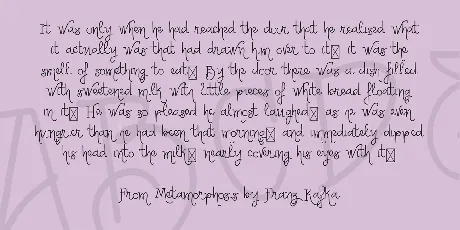 It was only when he had reached the door that he realised what
it actually was that had drawn him over to it□ it was the
smell of something to eat□ By the door there was a dish filled
with sweetened milk with little pieces of white bread floating
in it□ He was so pleased he almost laughed□ as he was even
hungrier than he had been that morning□ and immediately dipped
his head into the milk□ nearly covering his eyes with it□
From Metamorphosis by Franz Kafka